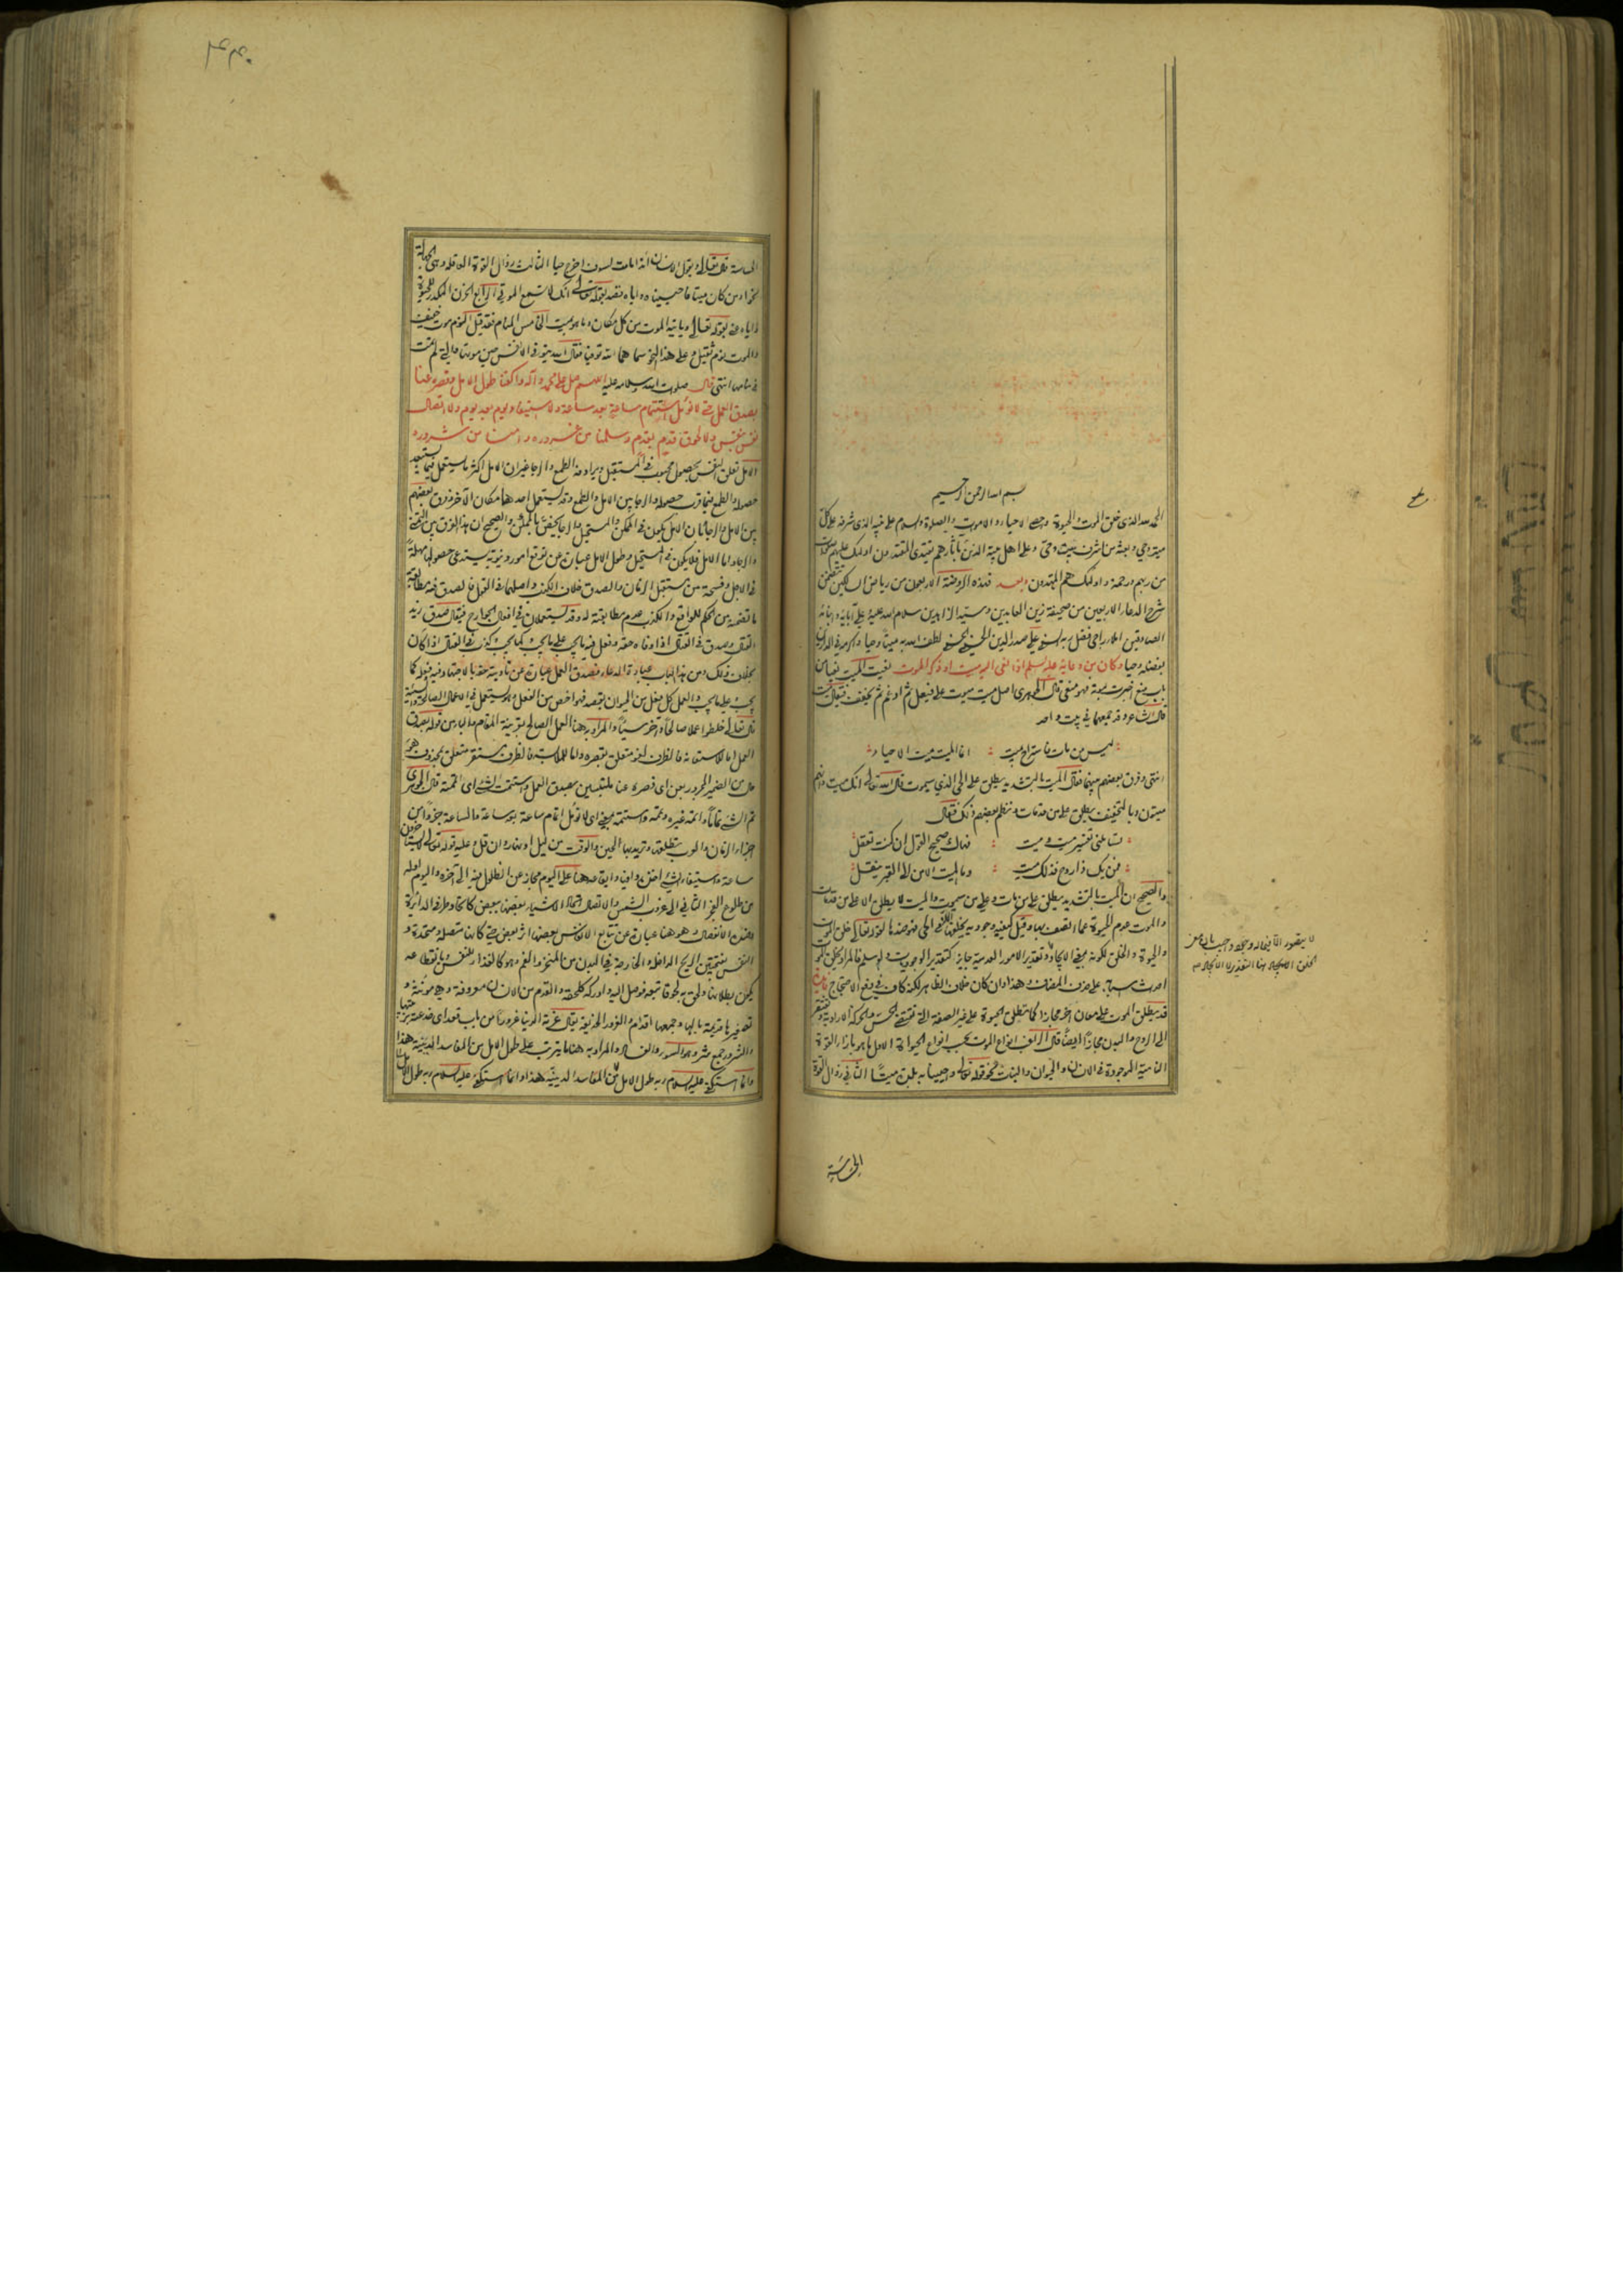 بسم الله الرحمن الرحيم
الحمد لله الذي خلق الموت والحيوة واحصى الاحياء والاموات والصلوة والسلام على نبيه الذي شرفه على كل
ميت وحي وبعثه من اشرف بيت وحي وعلى اهل بيته الذين بآثارهم يقتدى المقتدون اولئك عليهم صلوات
من ربهم ورحمة واولئك هم المهتدون وبعد فهذه الروضة الاربعون من رياض السالكين تتضمن
شرح الدعاء الاربعين من صحيفة زين العابدين وسيد الزاهدين سلام الله عليه وعلى آبائه وابنائه
الصادقين املاء راجي فضل ربه السني علي صدر الدين الحسيني الحسني لطف الله به ميتا وحيا
بفضله وحيا وكان من دعائه عليه السلم اذا نعي اليه ميت او ذكر الموت نعيت الميت نعيا من
باب منع اخبرت بموته فهو منعي قال الجوهري اصل ميت ميوت على فيعل ثم ادغم ثم يخفف فيقال ميت
قال الشاعر وقد جمعهما في بيت واحد
ليس من مات فاستراح بميت : انما الميت ميت الاحياء
انتهى وفرق بعضهم بينهما فقال الميت بالتشديد يطلق على الحي الذي سيموت قال الله تعالى انك ميت وانهم
ميتون وبالتخفيف يطلق على من قد مات ونظم بعضهم ذلك فقال
تسائلني تفسير ميت وميت : فهاك صحيح القول ان كنت تعقل
فمن يك ذا روح فذلك ميت : وما الميت الا من الى القبر ينقل
والصحيح ان الميت بالتشديد يطلق على من مات وعلى من سيموت والميت لا يطلق الا على من قد مات
والموت عدم الحيوة عما اتصف بها وقيل كيفية وجودية يخلقها الله في الحي فهو ضدها لقوله تعالى خلق الموت
والحيوة والخلق لكونه بمعنى الايجاد وتقدير الامور العدمية جايز كتقدير الوجوديات ولو سلم فالمراد بخلق الموت
احداث اسبابه على حذف المضاف وهذا وان كان خلاف الظاهر لكنه كاف في دفع الاحتجاج
قد يطلق الموت على معان اخر مجازا كما تطلق الحيوة على غير الصفة التي تقتضي الحس والحركة الارادية وتفتقر
الى الروح والبدن مجازا ايضا قال الراغب انواع الموت بحسب انواع الحيوة الاول ما هو بازاء القوة
النامية الموجودة في الانسان والحيوان والنبات نحو قوله تعالى واحيينا به بلدة ميتا الثاني زوال القوة
الحاسة
الحاسة قال تعالى ويقول الانسان ائذا ما مت لسوف اخرج حيا الثالث زوال القوة العاقلة وهي الجهالة
نحو او من كان ميتا فاحييناه واياه قصد بقوله تعالى انك لا تسمع الموتى الرابع الحزن المكدر للحيوة
واياه عنى بقوله تعالى ويأتيه الموت من كل مكان وما هو بميت الخامس المنام فقد قيل النوم موت خفيف
والموت نوم ثقيل وعلى هذا النحو سماهما الله توفيا فقال الله يتوفى الانفس حين موتها والتي لم تمت
في منامها انتهى قال صلوات الله وسلامه عليه اللهم صل على محمد وآله واكفنا طول الامل وقصره عنا
بصدق العمل حتى لا نؤمل استتمام ساعة بعد ساعة ولا استيفاء يوم بعد يوم ولا اتصال
نفس بنفس ولا لحوق قدم بقدم وسلمنا من غروره وآمنا من شروره
الامل تعلق النفس بحصول محبوب في المستقبل ويرادفه الطمع والرجا غير ان الامل اكثر ما يستعمل فيما يستبعد
حصوله والطمع فيما قرب حصوله والرجا بين الامل والطمع وقد يستعمل احدهما مكان الآخر وفرق بعضهم
بين الامل والرجا بان الامل يكون في الممكن والمستحيل والرجا يختص بالممكن والصحيح ان هذا الفرق بين التمني
والرجا واما الامل فلا يكون في المستحيل وطول الامل عبارة عن توقع امور دنيوية يستدعي حصولها مهلة
في الاجل وفسحة من مستقبل الزمان والصدق خلاف الكذب واصلهما في القول فالصدق فيه مطابقة
ما تضمنه من الحكم للواقع والكذب عدم مطابقته له وقد يستعملان في افعال الجوارح فيقال صدق زيد
القتال وصدق في القتال اذا وفاه حقه وفعل فيه ما يجب على ما يجب وكما يجب وكذب في القتال اذا كان
بخلاف ذلك ومن هذا الباب عبارة الدعاء فصدق العمل عبارة عن تأديته حقه بالاجتهاد فيه وفعله كما
يجب على ما يجب والعمل كل فعل من الحيوان بقصد فهو اخص من الفعل ويستعمل في الاعمال الصالحة والسيئة
قال تعالى خلطوا عملا صالحا وآخر سيئا والمراد به هنا العمل الصالح بقرينة المقام والباء من قوله بصدق
العمل اما للاستعانة فالظرف لغو متعلق بقصره واما للملابسة فالظرف مستقر متعلق بمحذوف هو
حال من الضمير المجرور بعن اي قصره عنا ملتبسين بصدق العمل واستتمت الشيء اي اتممته قال الجوهري
تم الشيء تماما واتمه غيره وتممه واستتمه بمعنى اي لا نؤمل اتمام ساعة بعد ساعة والساعة جزء من
اجزاء الزمان والعرب تطلقها وتريد بها الحين والوقت من ليل او نهار وان قل وعليه قوله تعالى لا يستأخرون
ساعة واستيفاء الشيء اخذه وافيا وايقاعه هنا على اليوم مجاز عن الحلول فيه الى آخره واليوم اوله
من طلوع الفجر الثاني الى غروب الشمس والاتصال اتحاد الاشياء بعضها ببعض كاتحاد طرفي الدائرة
وضده الانفصال وهو هنا عبارة عن تتابع الانفس بعضها اثر بعض حتى كانها متصلة متحدة و
النفس بفتحتين الريح الداخل والخارج في البدن من المنخر والفم وهو كالغذاء للنفس وبانقطاعه
يكون بطلانها ولحق به لحوقا تبعه فوصل اليه وادركه كلحقه والقدم من الانسان معروفة وهي مؤنثة و
تصغيرها قديمة بالهاء وجمعها اقدام والغرور الخديعة يقال غرته الدنيا غرورا من باب قعد اي خدعته بزينتها
والشرور جمع شر وهو السوء والفساد والمراد به هنا ما يترتب على طول الامل من المفاسد الدينية هذا
وانما استكفى عليه السلام ربه طول الامل من المفاسد الدينية هذا وانما استكفى عليه السلام ربه طول الامل